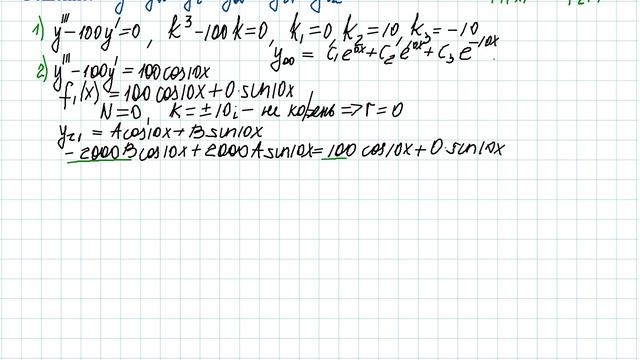 1) y''' - 100y' = 0, k³ - 100k = 0, k₁ = 0, k₂ = 10, k₃ = -10
y₀₀ = C₁e⁰ˣ + C₂e¹⁰ˣ + C₃e⁻¹⁰ˣ
2) y''' - 100y' = 100cos10x
f₁(x) = 100cos10x + 0·sin10x
N = 0, k = ±10i - не корень => r = 0
yг₁ = Acos10x + Bsin10x
- 2000Bcos10x + 2000Asin10x = 100cos10x + 0·sin10x